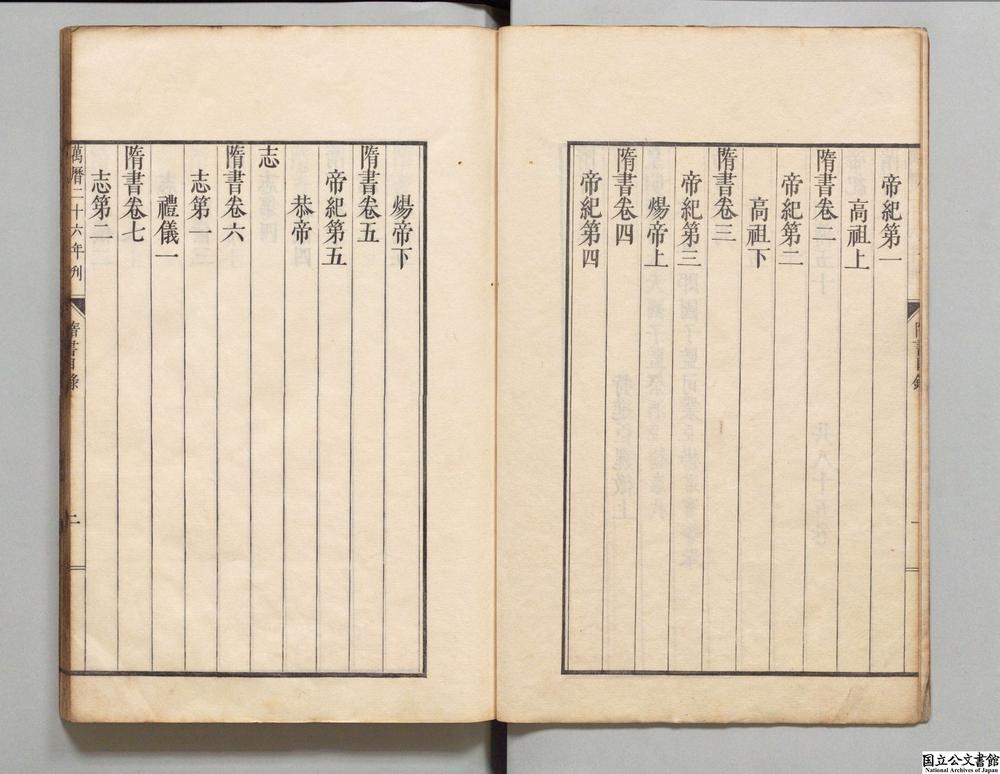 帝紀第一
高祖上
隋書卷二
帝紀第二
高祖下
隋書卷三
帝紀第三
煬帝上
隋書卷四
帝紀第四
煬帝下
隋書卷五
帝紀第五
恭帝
志
隋書卷六
志第一
禮儀一
隋書卷七
志第二
萬曆二十六年刋
隋書目錄
二
国立公文書館
National Archives of Japan